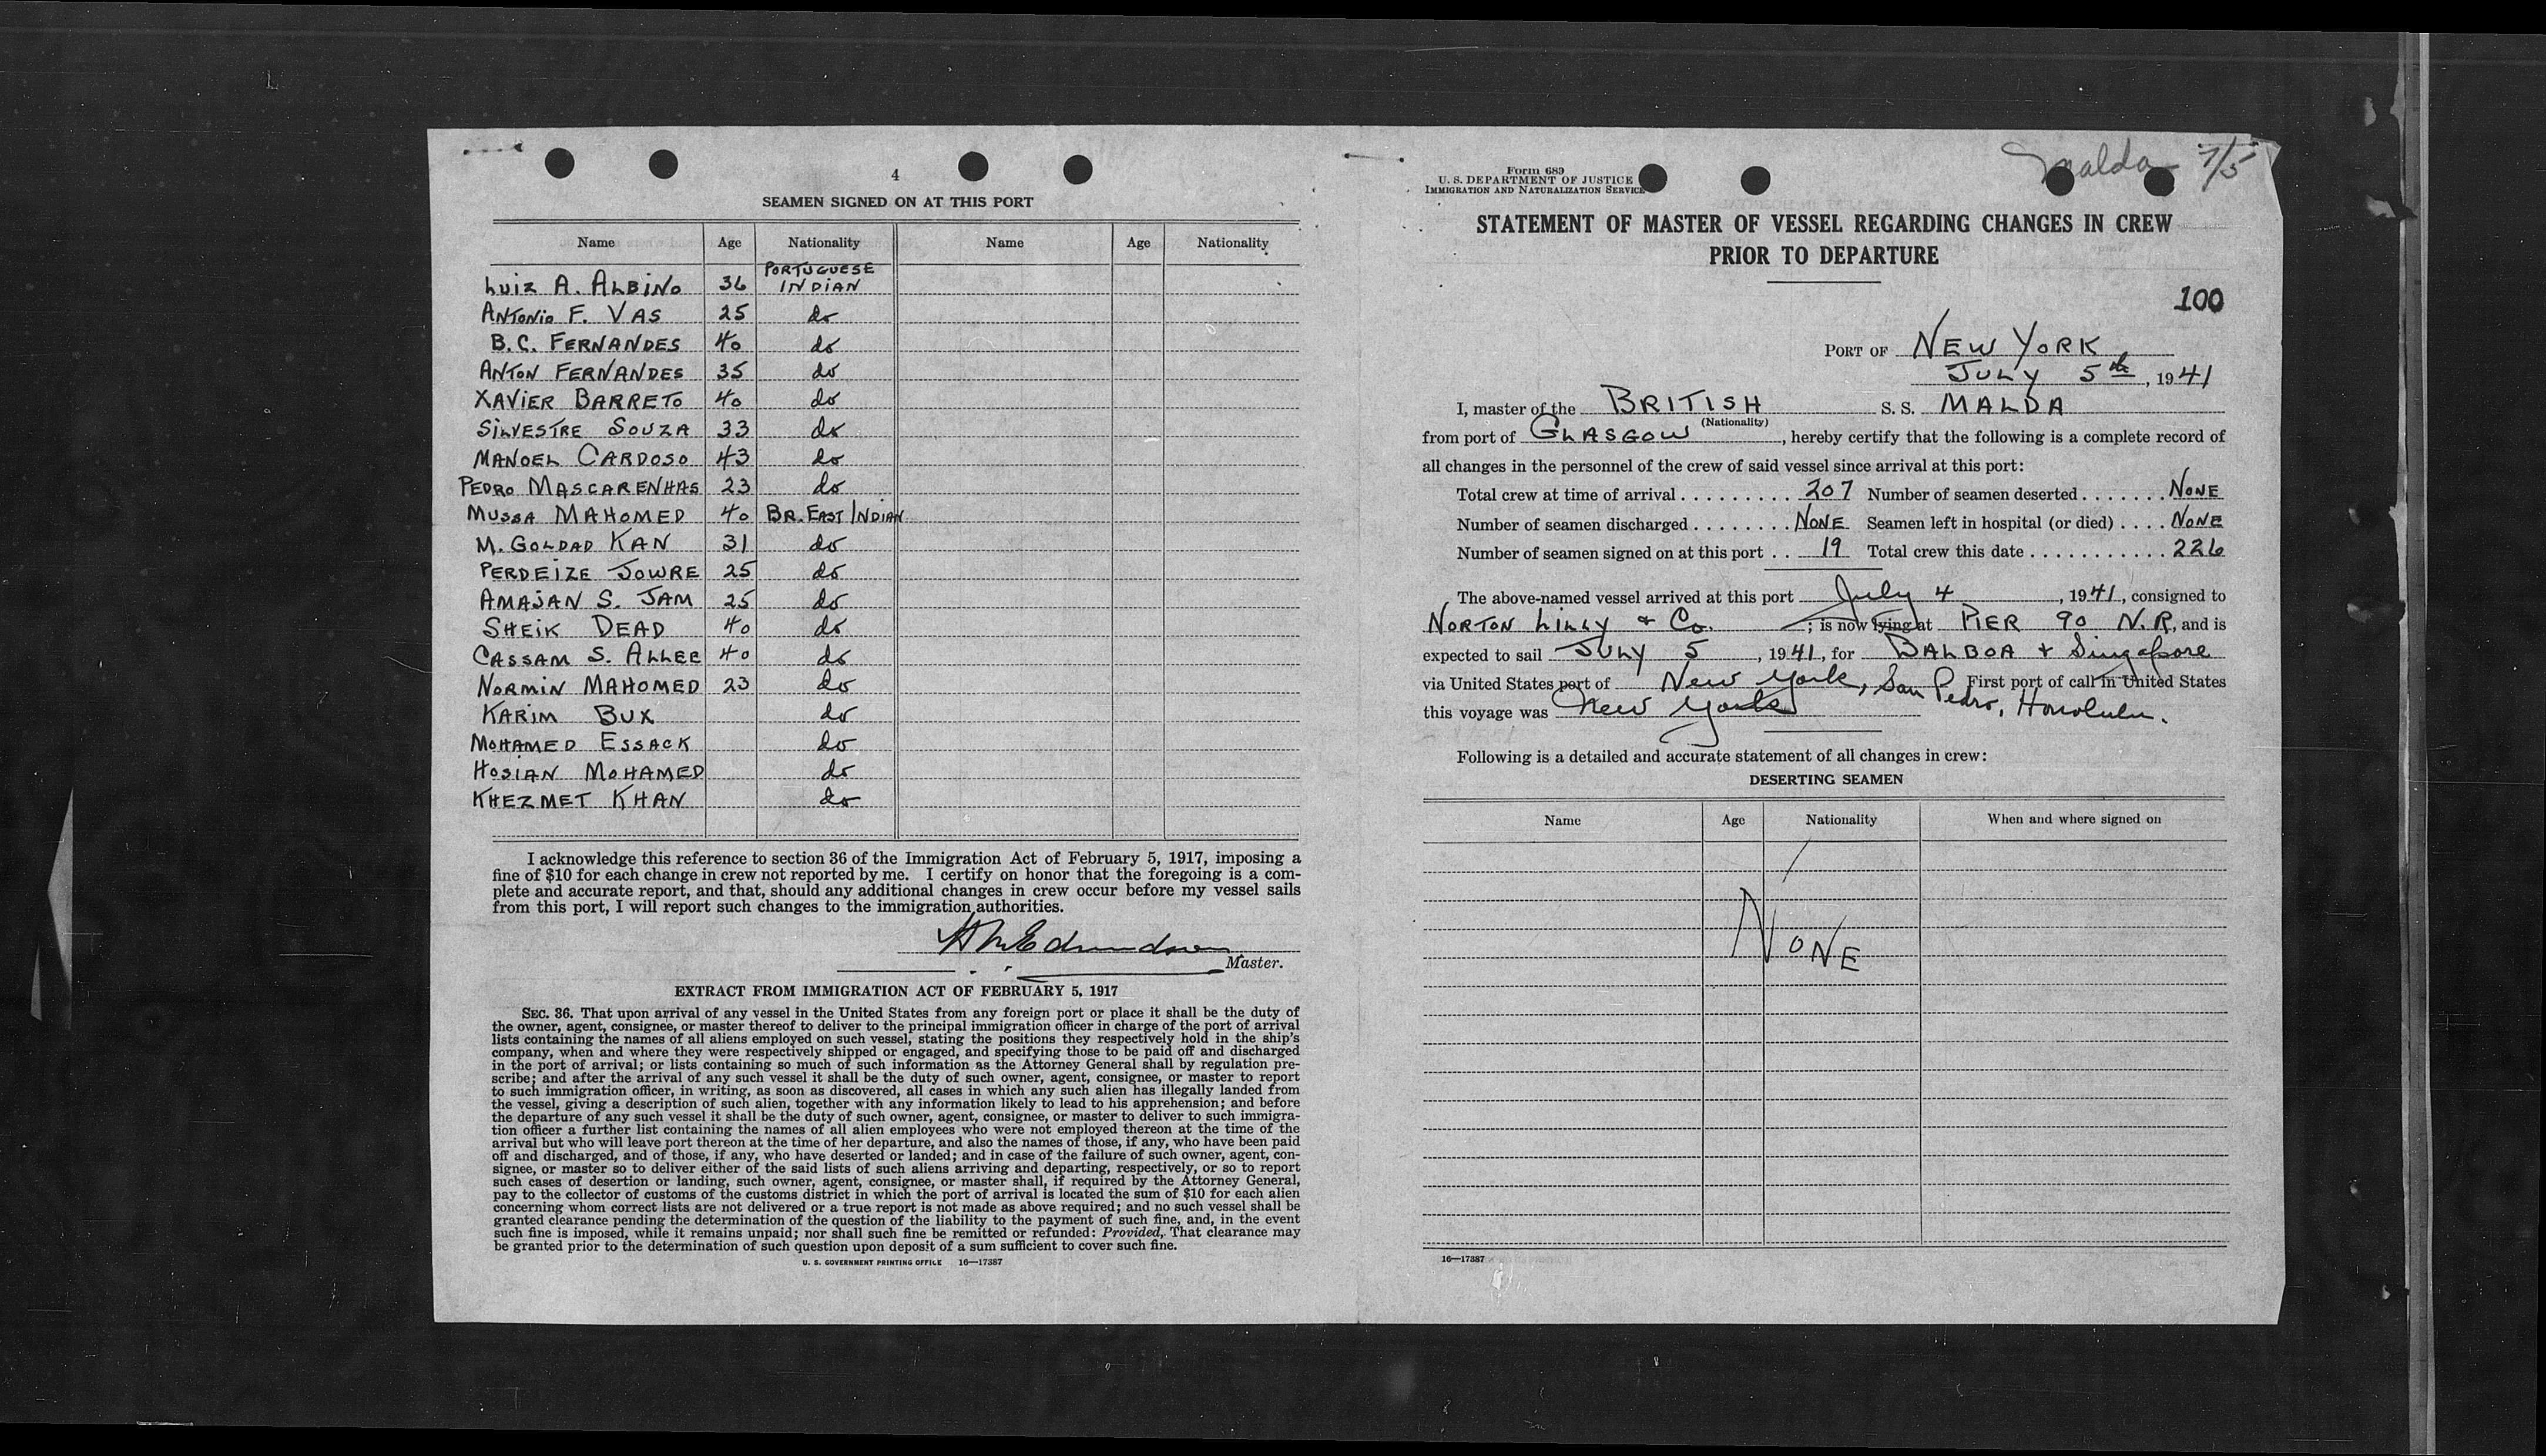 4
SEAMEN SIGNED ON AT THIS PORT
Name Age Nationality Name Age Nationality
LUIZ A. ALBINO 36 PORTUGUESE INDIAN
ANTONIO F. VAS 25 do
B.C. FERNANDES 40 do
ANTON FERNANDES 35 do
XAVIER BARRETO 40 do
SILVESTRE SOUZA 33 do
MANOEL CARDOSO 43 do
PEDRO MASCARENHAS 23 do
MUSSA MAHOMED 40 BR. EAST INDIAN
M. GOLDAD KAN 31 do
PERDEIZE JOWRE 25 do
AMAJAN S. JAM 25 do
SHEIK DEAD 40 do
CASSAM S. ALLEE 40 do
NORMIN MAHOMED 23 do
KARIM BUX do
MOHAMED ESSACK do
HOSIAN MOHAMED do
KHEZMET KHAN do
I acknowledge this reference to section 36 of the Immigration Act of February 5, 1917, imposing a
fine of $10 for each change in crew not reported by me. I certify on honor that the foregoing is a com-
plete and accurate report, and that, should any additional changes in crew occur before my vessel sails
from this port, I will report such changes to the immigration authorities.
Edmundson
Master.
EXTRACT FROM IMMIGRATION ACT OF FEBRUARY 5, 1917
SEC. 36. That upon arrival of any vessel in the United States from any foreign port or place it shall be the duty of
the owner, agent, consignee, or master thereof to deliver to the principal immigration officer in charge of the port of arrival
lists containing the names of all aliens employed on such vessel, stating the positions they respectively hold in the ship's
company, when and where they were respectively shipped or engaged, and specifying those to be paid off and discharged
in the port of arrival; or lists containing so much of such information as the Attorney General shall by regulation pre-
scribe; and after the arrival of any such vessel it shall be the duty of such owner, agent, consignee, or master to report
to such immigration officer, in writing, as soon as discovered, all cases in which any such alien has illegally landed from
the vessel, giving a description of such alien, together with any information likely to lead to his apprehension; and before
the departure of any such vessel it shall be the duty of such owner, agent, consignee, or master to deliver to such immigra-
tion officer a further list containing the names of all alien employees who were not employed thereon at the time of the
arrival but who will leave port thereon at the time of her departure, and also the names of those, if any, who have been paid
off and discharged, and of those, if any, who have deserted or landed; and in case of the failure of such owner, agent, con-
signee, or master so to deliver either of the said lists of such aliens arriving and departing, respectively, or so to report
such cases of desertion or landing, such owner, agent, consignee, or master shall, if required by the Attorney General,
pay to the collector of customs of the customs district in which the port of arrival is located the sum of $10 for each alien
concerning whom correct lists are not delivered or a true report is not made as above required; and no such vessel shall be
granted clearance pending the determination of the question of the liability to the payment of such fine, and, in the event
such fine is imposed, while it remains unpaid; nor shall such fine be remitted or refunded: Provided, That clearance may
be granted prior to the determination of such question upon deposit of a sum sufficient to cover such fine.
U. S. GOVERNMENT PRINTING OFFICE 16—17387
Malda 7/5
Form 689
U. S. DEPARTMENT OF JUSTICE
IMMIGRATION AND NATURALIZATION SERVICE
STATEMENT OF MASTER OF VESSEL REGARDING CHANGES IN CREW
PRIOR TO DEPARTURE
100
PORT OF NEW YORK
JULY 5th, 1941
I, master of the BRITISH S. S. MALDA
(Nationality)
from port of GLASGOW, hereby certify that the following is a complete record of
all changes in the personnel of the crew of said vessel since arrival at this port:
Total crew at time of arrival . . . . . . . . . . 207 Number of seamen deserted . . . . . . . NONE
Number of seamen discharged . . . . . . . . NONE Seamen left in hospital (or died) . . . . NONE
Number of seamen signed on at this port . . 19 Total crew this date . . . . . . . . . . . 226
The above-named vessel arrived at this port July 4, 1941, consigned to
NORTON LILLY & Co.; is now lying at PIER 90 N.R, and is
expected to sail JULY 5, 1941, for BALBOA & Singapore
via United States port of New York, San Pedro, Honolulu. First port of call in United States
this voyage was New York
Following is a detailed and accurate statement of all changes in crew:
DESERTING SEAMEN
Name Age Nationality When and where signed on
NONE
16—17387